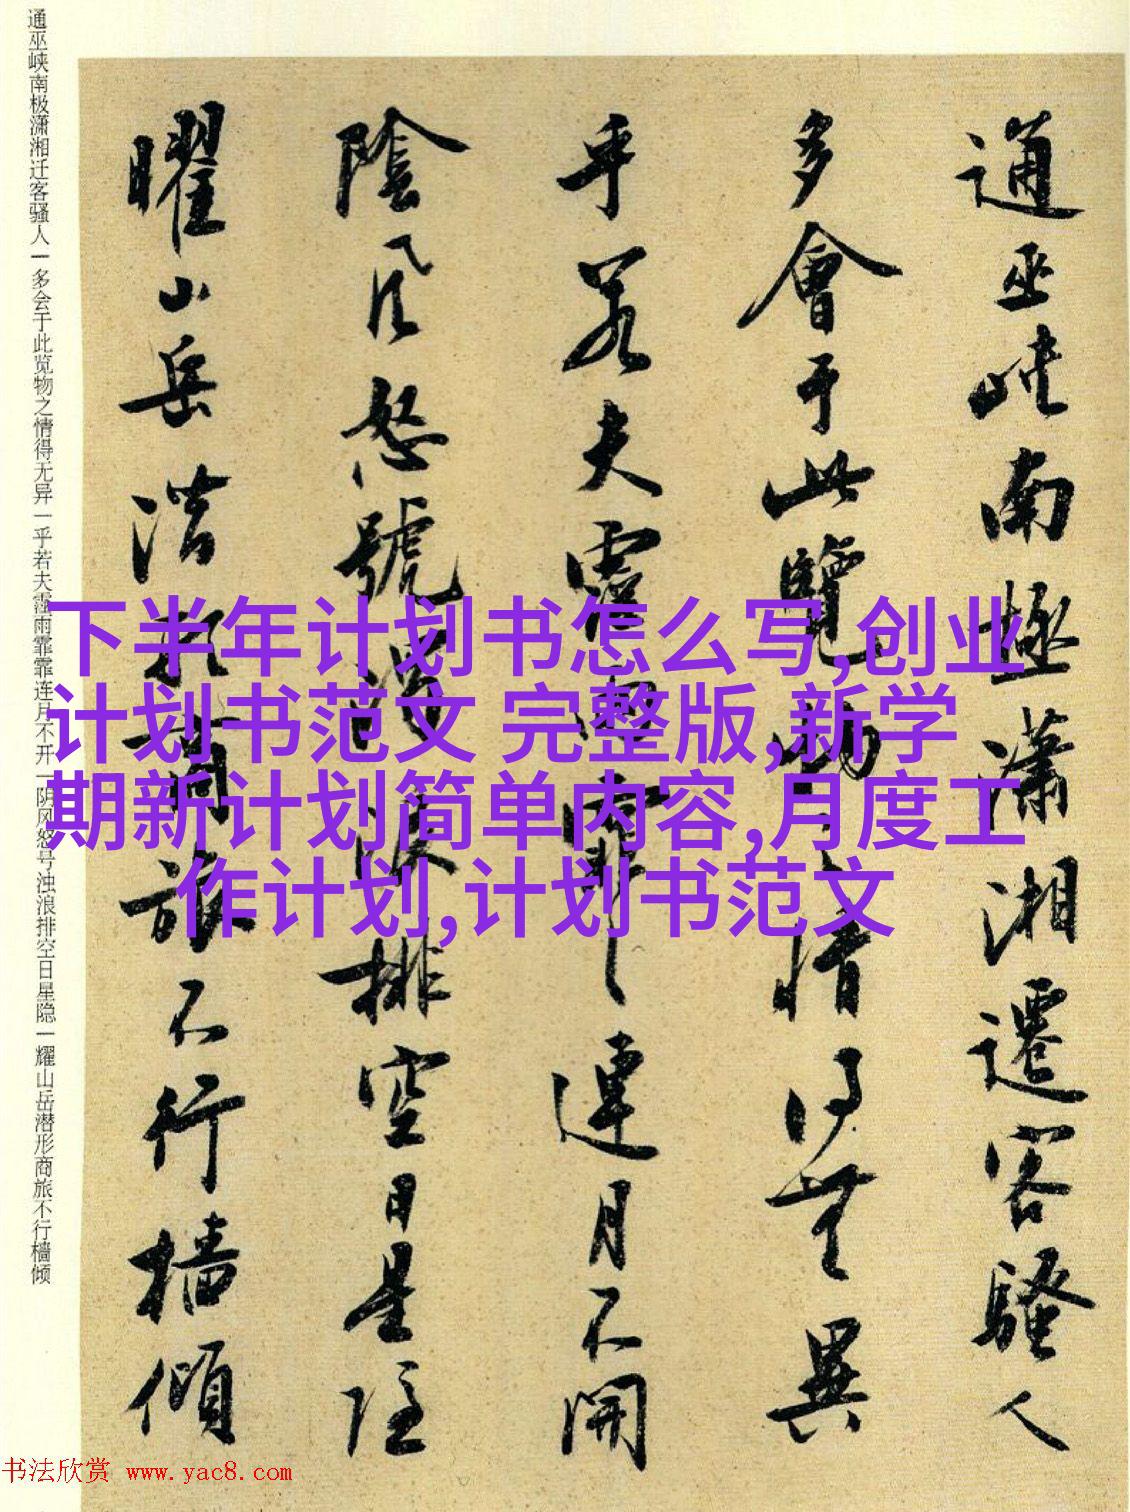 通巫峡南极潇湘迁客骚人一多会于此览物之情得无异一乎若夫霪雨霏霏连月不开一阴风怒号浊浪排空日星隐一耀山岳潜形商旅不行樯倾
通巫峡南極瀟湘遷客騷人
多會于此覽物之情得無異
乎若夫霪雨霏霏連月不開
陰風怒號濁浪排空日星隱
曜山岳潜形商旅不行檣傾
下半年计划书怎么写,创业
计划书范文 完整版,新学
期新计划简单内容,月度工
作计划,计划书范文
书法欣赏 www.yac8.com